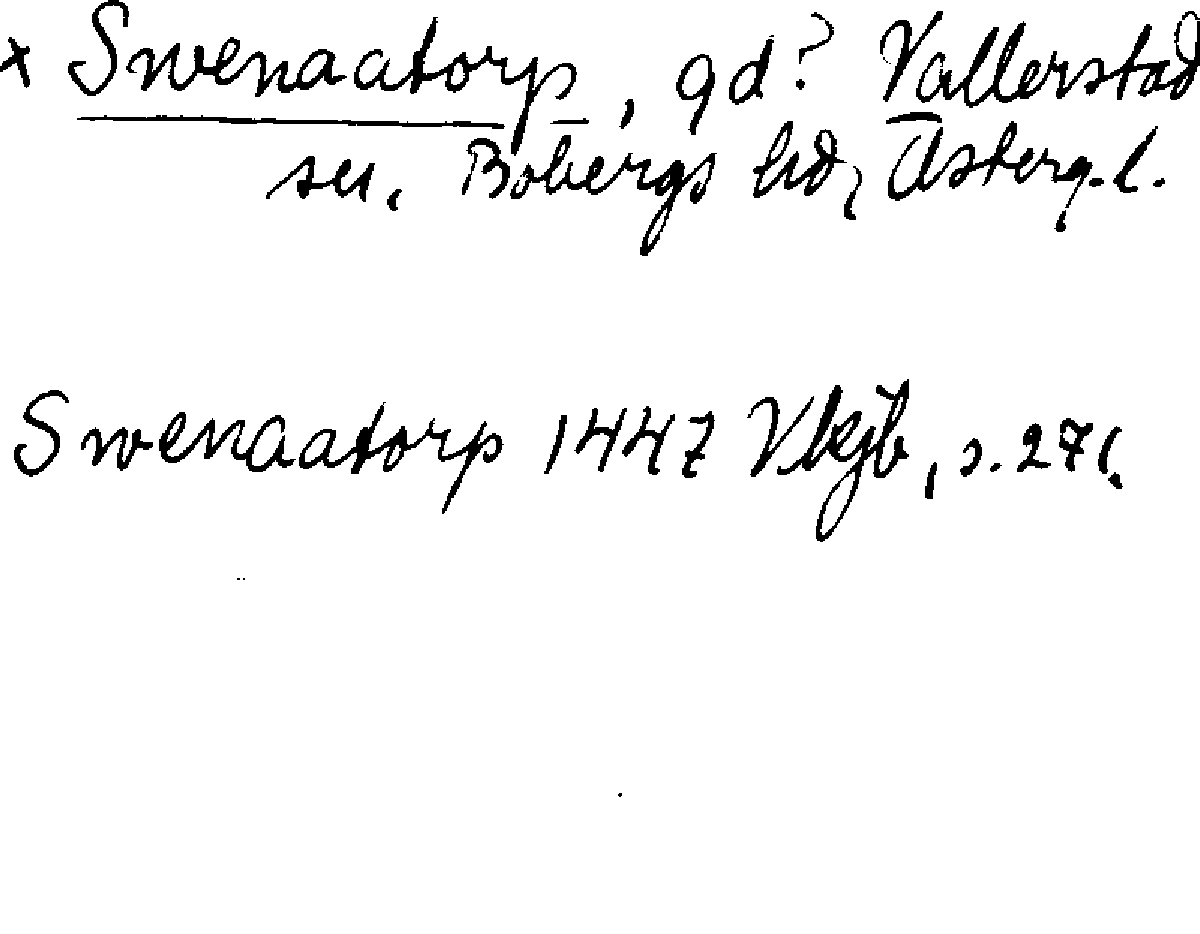 + Swenaatorp, gd? Vallerstad
sn. Bobergs hd, Österg. l.
Swenaatorp 1447 Vkjb, s. 271.